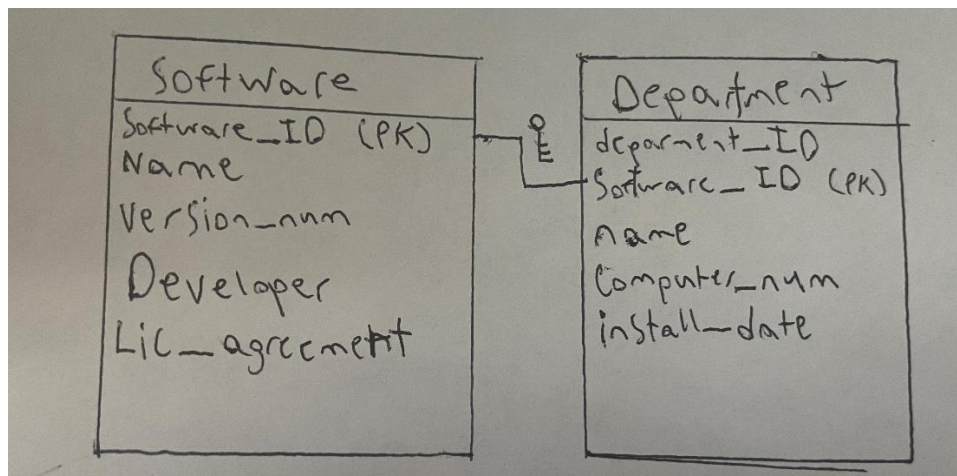 Software
Software_ID (PK)
Name
Version_num
Developer
Lic_agreement
Department
deparment_ID
Software_ID (PK)
name
Computer_num
install_date